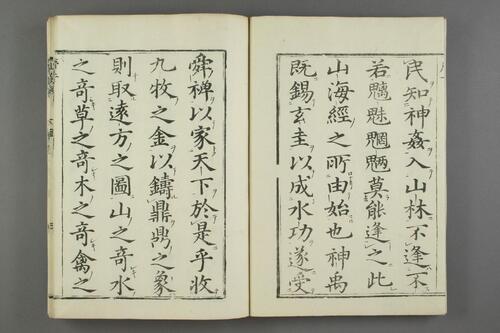 民知神姦入山林不逢不
若魑魅魍魎莫能逢之此
山海經之所由始也神禹
既錫玄圭以成水功遂受
舜禅以家天下於是乎收
九牧之金以鑄鼎鼎之象
則取遠方之圖山之竒水
之竒草之竒木之竒禽之